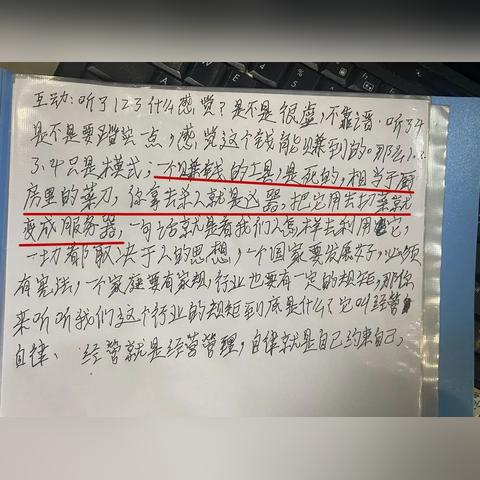 互动：听了123什么感觉？是不是很虚，不靠谱．听了4
是不是要踏实一点，感觉这个钱能赚到的。那么1.2
3.4只是模式；一个赚钱的工具是死的，相当于厨
房里的菜刀，你拿去杀人就是凶器，把它用去切菜就
变成服务器，一句话就是看我们人怎样去利用它，
一切都取决于人的思想，一个国家要发展好，必须
有宪法，一个家庭要有家规，行业也要有一定的规矩，那你
来听听我们这个行业的规矩到底是什么？它叫经营
自律、经营就是经营管理，自律就是自己约束自己，